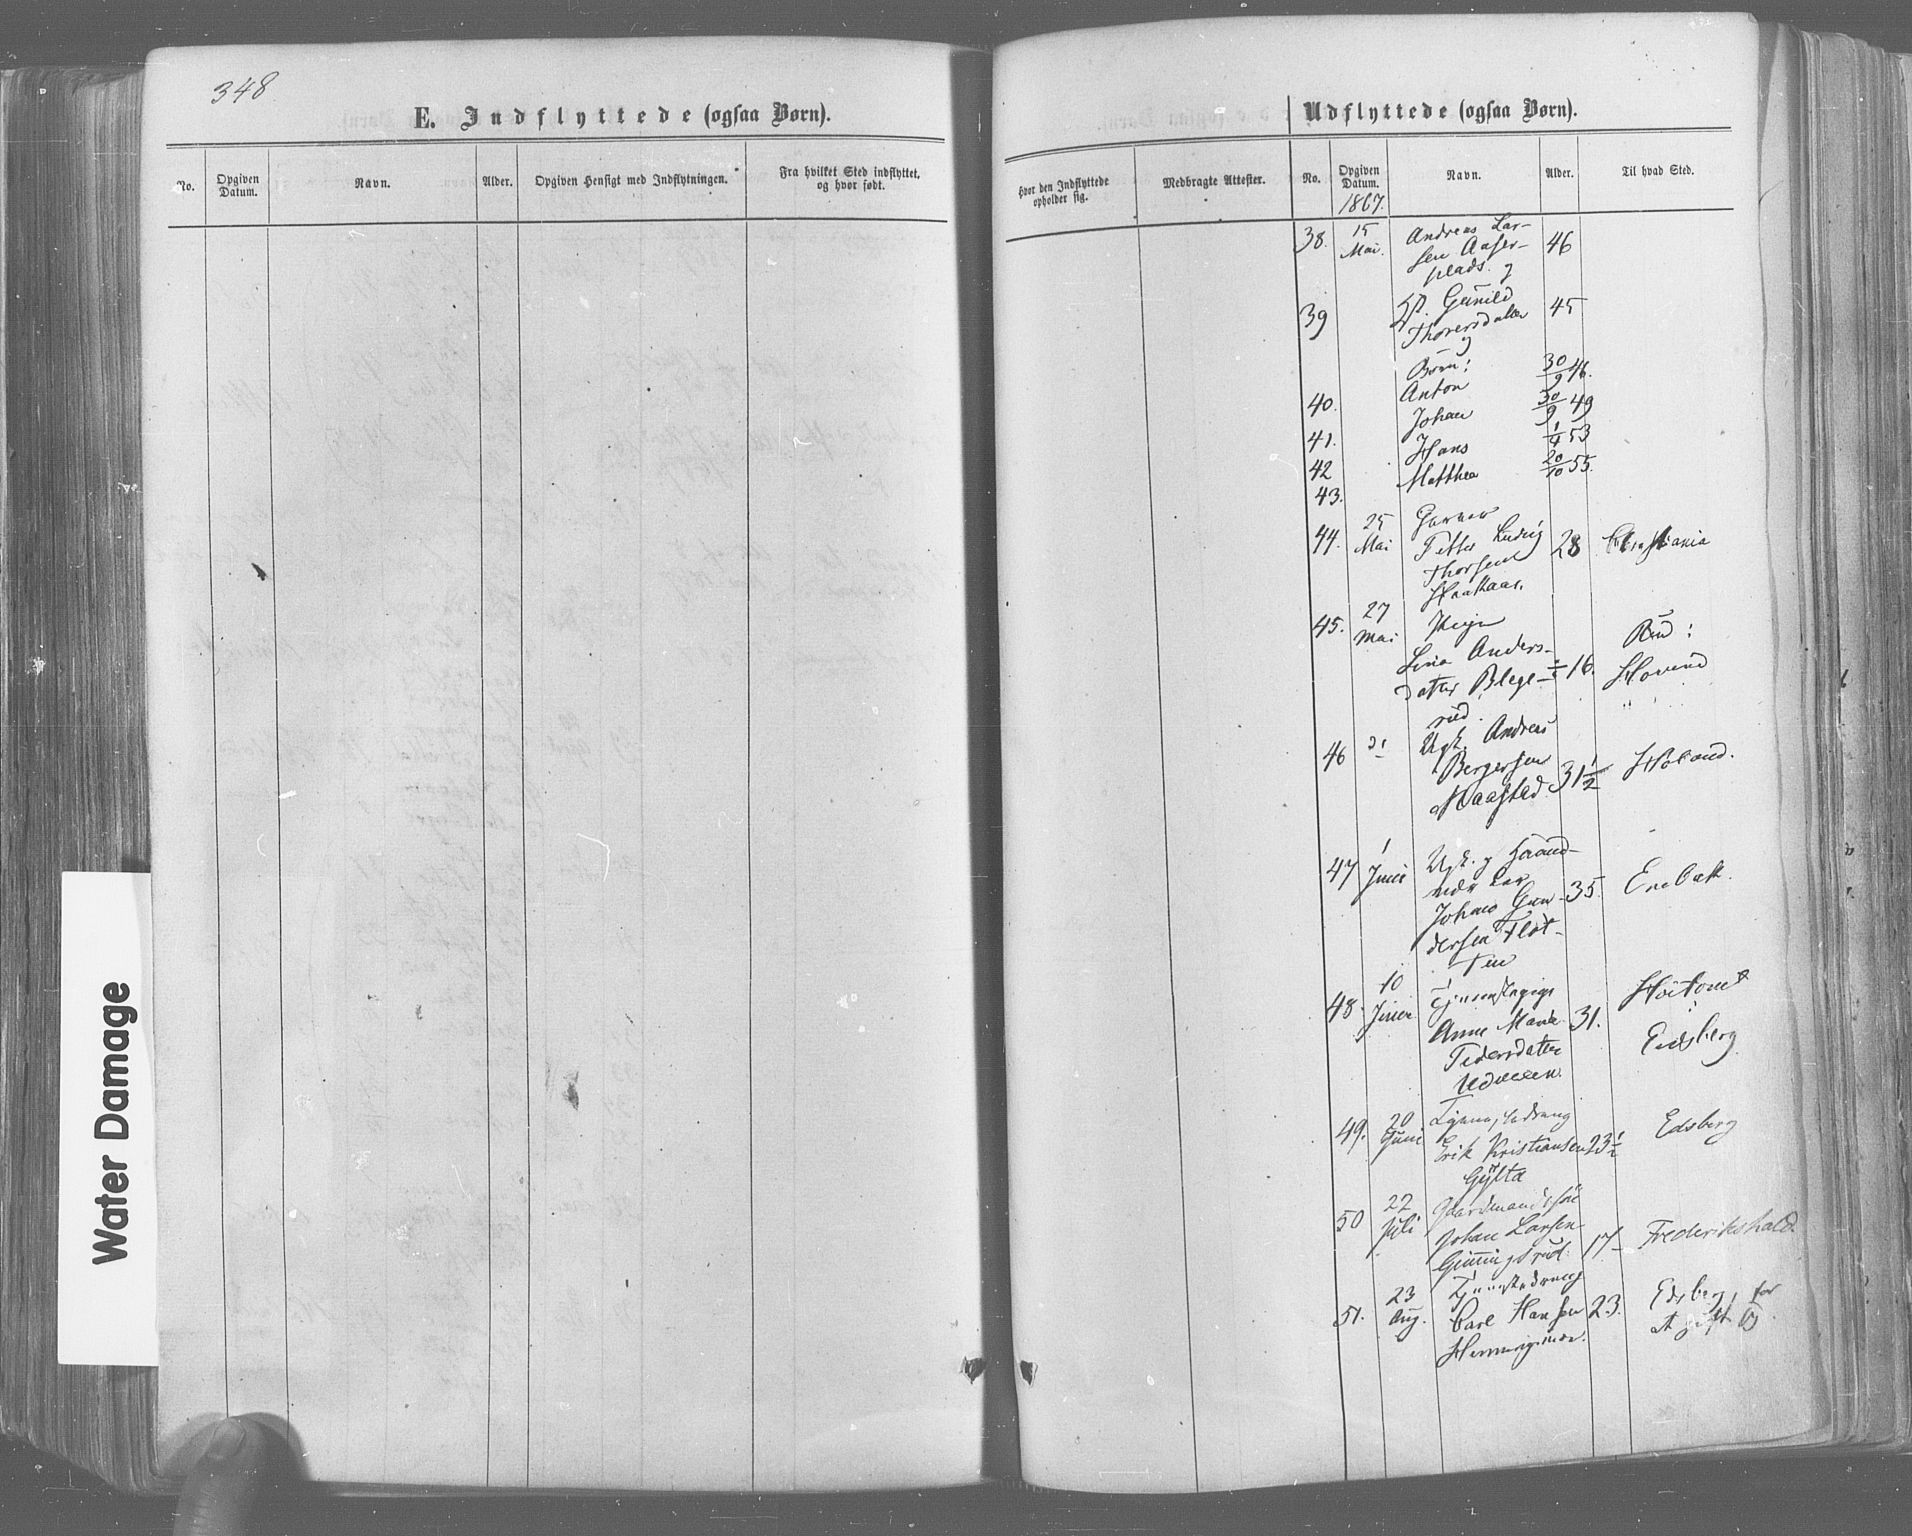 348
E. Indflyttede (ogsaa Børn).
No.
Opgiven Datum.
Navn.
Alder.
Opgiven Hensigt med Indflytningen.
Fra hvilket Sted indflyttet, og hvor født.
Hvor den Indflyttede opholder sig.
Medbragte Attester.
Udflyttede (ogsaa Børn).
No.
Opgiven Datum.
Navn.
Alder.
Til hvad Sted.
1867.
38. 15 Mai. Andreas Lar- 46
sen Aaser-
plads. og
39 Gunild 45
Thoresdatter
og
Børn:
40. Anton 30/9 46.
41. Johan 30/9 49
42 Hans 1/4 53
43. Matthea 20/10 55.
44. 25 Mai Garver
Petter Ludvig 28 Christiania
Thorsen
Haakaas.
45. 27 Mai Pige
Lina Anders- 16. Rud:
datter Blege- Hovind
rud.
46 do Ugk. Andreas
Bergersen
Maastad. 31 1/2 Høland.
47 1 Juni Ugk. og Haand-
Johans Gun- 35. Enebak.
dersen Flot-
ten
48. 10 Juni Tjenestepige Høitomt
Anne Marie 31. Eidsberg
Pedersdatter
49. 20 Juni Tjenestedreng
Erik Kristiansen 23 1/2 Edsberg
Gylta
50 22 Juli Gaardmandssøn
Johan Larsen 17 Frederikshald.
51. 23 Aug. Tjenestedreng
Carl Hansen 23. Edsberg, for
at gifte sig